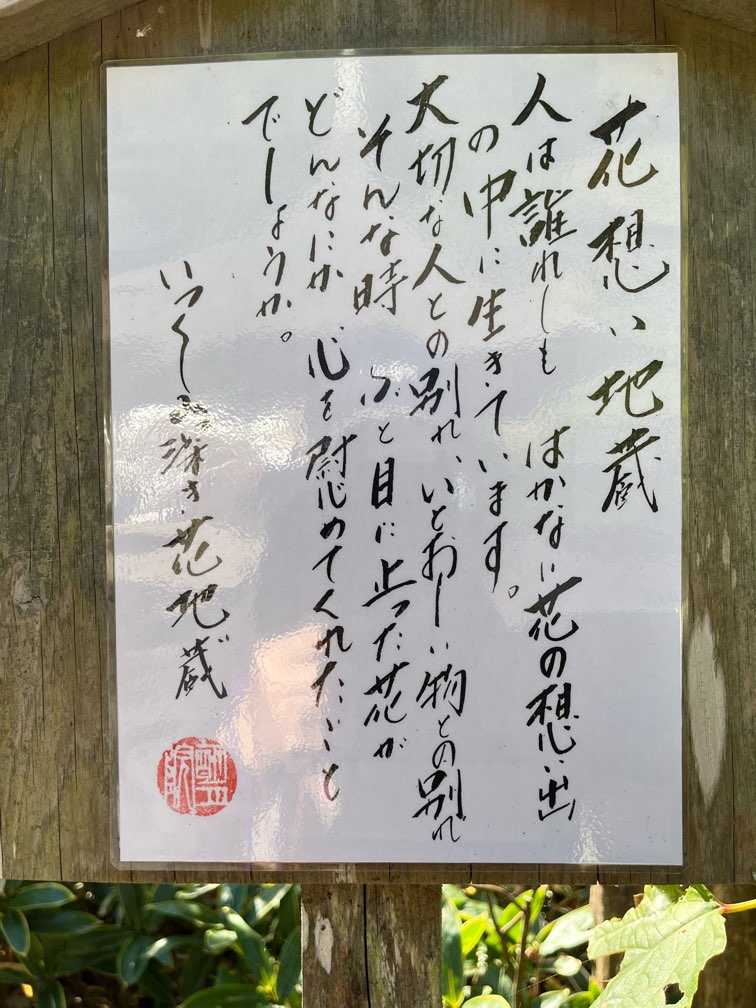 花想い地蔵
人は誰れしも はかない花の想い出
の中に生きています。
大切な人との別れ、いとおしい物との別れ
そんな時 ふと目に止った花が
どんなにか、心を慰めてくれたこと
でしょうか。
いつくしみ深き花地蔵